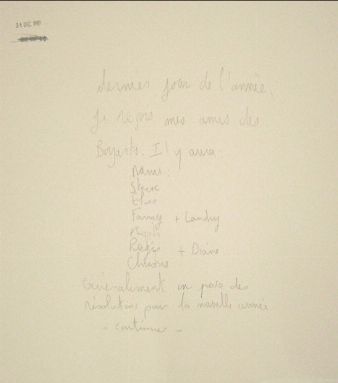 31 DEC. 1981
dernier jour de l'année,
Je reçois mes amis des
Boyards. Il y aura:
Steeve
Fanny + Landry
Régis + Diane
Christine
Généralement on passe des
résolutions pour la nouvelle année
- continuer -